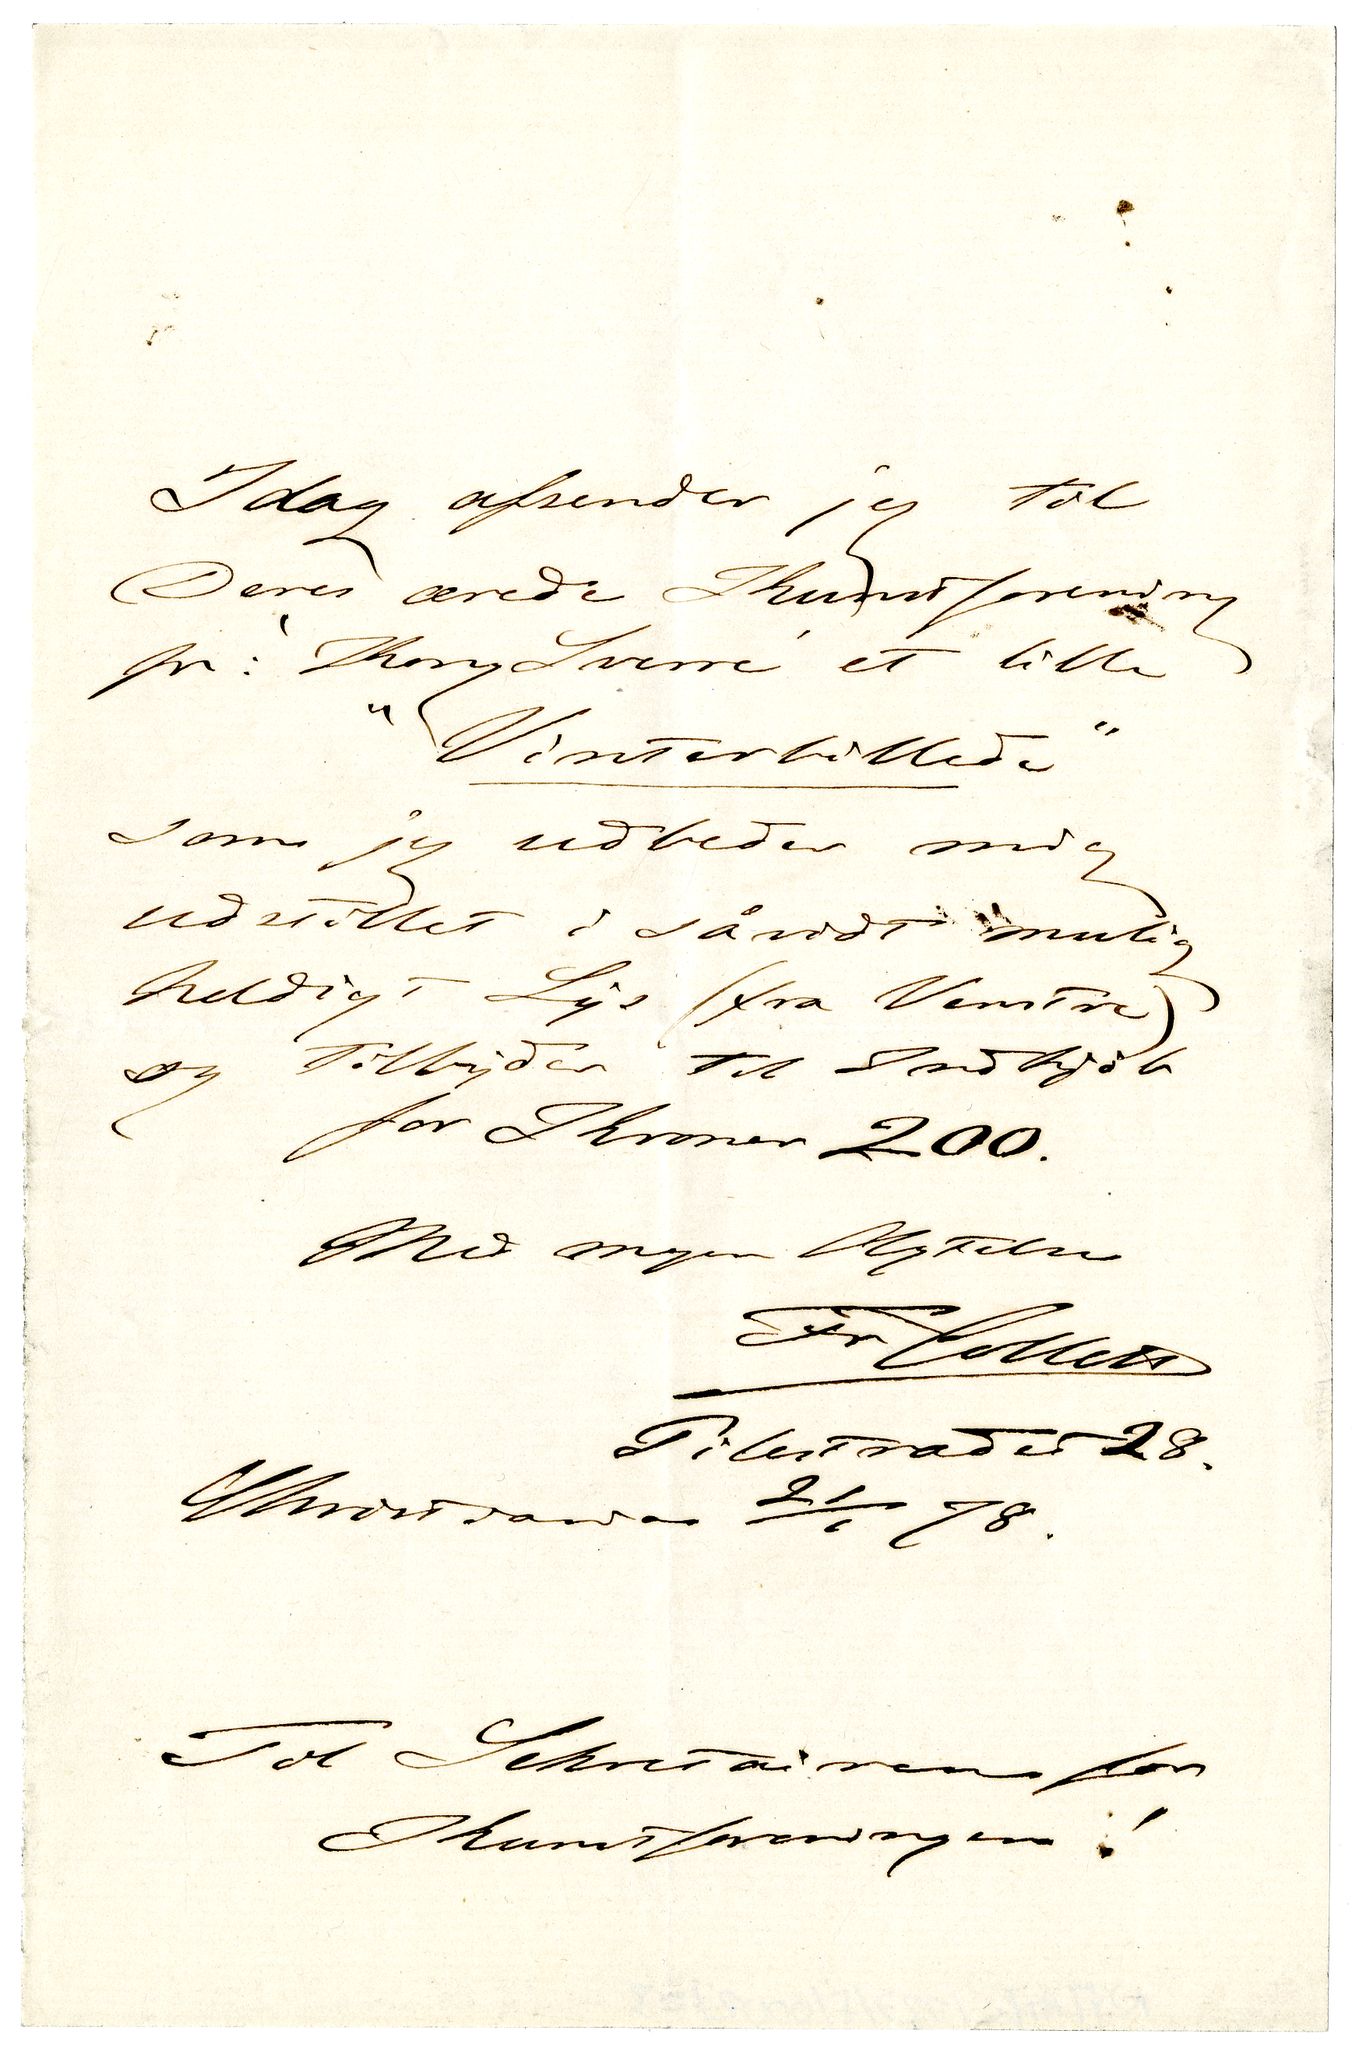 Idag afsender jeg til
Deres ærede Kunstforening
pr: "Kong Sverre" et lille
"Vinterbillede"
som jeg udbeder mig
udstillet i såvidt mulig
heldigt Lys (fra Venstre)
og tilbyder til Indkjöb
for Kroner 200.
Med megen Agtelse
Fr Collett
Pilestrædet 28.
Christiania 21/1 78.
Til Sekretairen for
Kunstforeningen!